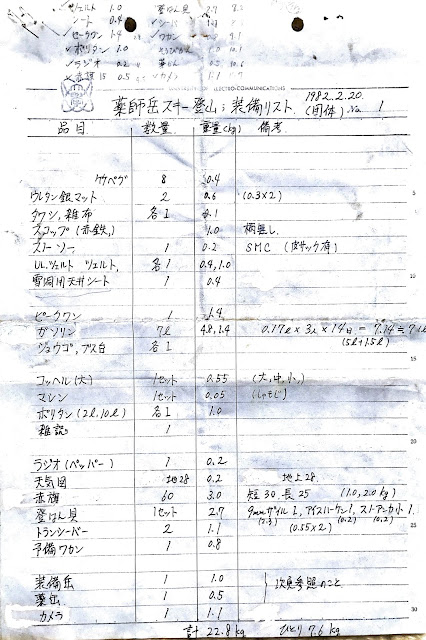 ツェルト 1.0 登はん具 2.7 8.2
シート 0.4
セータワン 1.4 ワカン 9.1
ポリタン 1.0
ラジオ 0.2 薬缶 0.5 10.6
赤旗15 0.5 カメラ 1.1
UNIVERSITY OF ELECTRO-COMMUNICATIONS
薬師岳スキー登山;装備リスト 1982.2.20
(団体) No. 1
品目 数量 重量(kg) 備考
竹ペグ 8 0.4
ウレタン銀マット 2 0.6 (0.3×2)
タワシ,雑布 各1 0.1
スコップ(赤鉄) 1.0 柄無し
スノーソー 1 0.2 SMC (皮サック有)
ULツェルト ツェルト, 各1 0.4, 1.0
雪洞用天井シート 1 0.4
ピークワン 1 1.4
ガソリン 7ℓ 4.8, 1.4 0.17ℓ × 3人 × 14日 = 7.14 ≒ 7ℓ
ジョウゴ,ブス台 各1 (5ℓ+1.5ℓ)
コッヘル(大) 1セット 0.55 (大,中,小,)
マレン 1セット 0.05 (しゃもじ)
ポリタン(2ℓ,10ℓ) 各1 1.0
雑記 1
ラジオ(ペッパー) 1 0.2
天気図 地28 0.2 地上28
赤旗 60 3.0 短30,長25 (1.0, 2.0kg)
登はん具 1セット 2.7 9mmザイル1,アイスハーケン1,スノーアンカー小1
トランシーバー 2 1.1 (0.55×2) (2.3) (0.2) (0.2)
予備ワカン 1 0.8
装備缶 1 1.0
薬缶 1 0.5 次頁参照のこと
カメラ 1 1.1
計 22.8kg ひとり 7.6kg